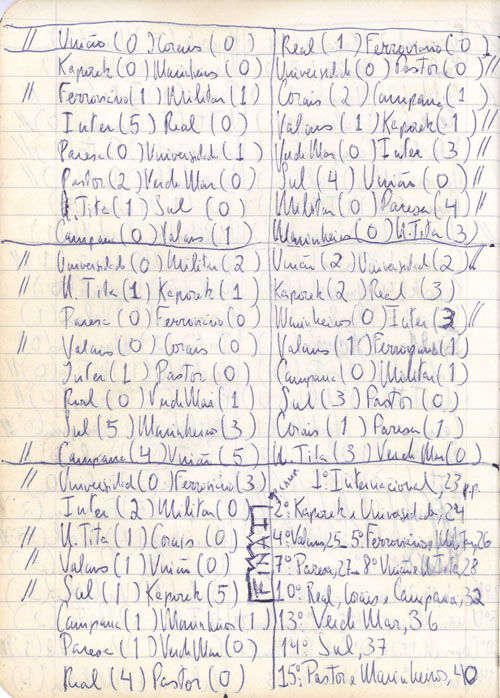 // União (0) Corais (0)
Kaporek (0) Marinheiros (0)
// Ferroviário (1) Militar (1)
Inter (5) Real (0)
Paresa (0) Universidade (1)
Pastor (2) Verde Mar (0)
U. Tita (1) Sul (0)
Campana (0) Valans (1)
// Universidade (0) Militar (2)
// U. Tita (1) Kaporek (1)
Paresa (0) Ferroviário (0)
// Valans (0) Corais (0)
Inter (1) Pastor (0)
Real (0) Verde Mar (1
Sul (5) Marinheiros (3)
// Campana (4) União (5)
// Universidad (0) Ferroviário (3)
Inter (2) Militar (0)
// U. Tita (1) Corais (0)
// Valans (1) União (0)
// Sul (1) Kaporek (5)
Campana (1) Marinheiros (1)
Paresa (1) Verde Mar (0)
Real (4) Pastor (0)
Real (1) Ferroviário (0)
Universidade (0) Pastor (0) //
Corais (2) Campana (1)
Valans (1) Kaporek (1) //
Verde Mar (0) Inter (3) //
Sul (4) União (0) //
Militar (0) Paresa (4) //
Marinheiros (0) U. Tita (3)
União (2) Universidade (2) //
Kaporek (2) Real (3)
Marinheiros (0) Inter (3) //
Valans (1) Ferroviário (1)
Campana (0) Militar (1)
Sul (3) Pastor (0)
Corais (1) Paresa (1)
U. Tita (3) Verde Mar (0)
FINAL
1º Internacional, 23 p.p.
2º Kaporek e Universidade, 24
4º Valans, 25 – 5º Ferroviário e Militar, 26
7º Paresa, 27 – 8º União e U. Tita, 28
10º Real, Corais e Campana, 32
13º Verde Mar, 36
14º Sul, 37
15º Pastor e Marinheiros, 40